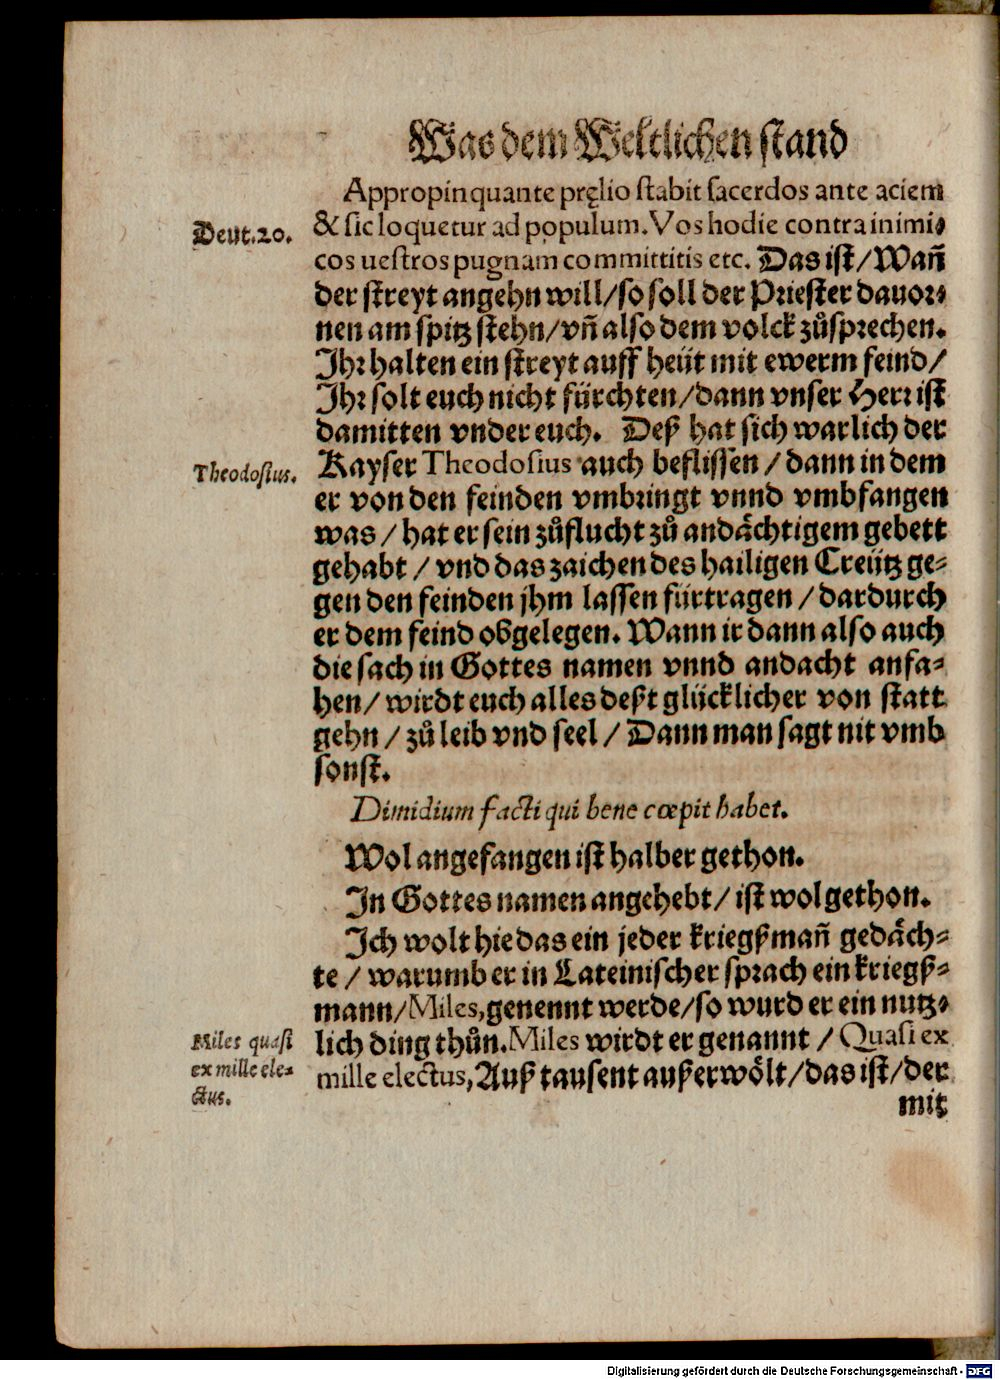 Was dem Weltlichen stand
Appropinquante pręlio stabit sacerdos ante aciem
Deut. 20.
& sic loquetur ad populum. Vos hodie contra inimi-
cos uestros pugnam committitis etc. Das ist/ Wañ
der streyt angehn will/ so soll der Priester dauor-
nen am spitz stehn/ vñ also dem volck zůsprechen.
Ihr halten ein streyt auff heüt mit ewerm feind/
Ihr solt euch nicht fürchten/ dann vnser Herr ist
damitten vnder euch. Deß hat sich warlich der
Theodosius.
Kayser Theodosius auch beflissen/ dann in dem
er von den feinden vmbringt vnnd vmbfangen
was/ hat er sein zůflucht zů andåchtigem gebett
gehabt/ vnd das zaichen des hailigen Creütz ge-
gen den feinden jhm lassen fürtragen/ dardurch
er dem feind obgelegen. Wann ir dann also auch
die sach in Gottes namen vnnd andacht anfa-
hen/ wirdt euch alles deßt glücklicher von statt
gehn/ zů leib vnd seel/ Dann man sagt nit vmb
sonst.
Dimidium facti qui bene cœpit habet.
Wol angefangen ist halber gethon.
In Gottes namen angehebt/ ist wol gethon.
Ich wolt hie das ein jeder kriegßmañ gedåch-
te/ warumb er in Lateinischer sprach ein kriegß-
mann/ Miles, genennt werde/ so wurd er ein nutz-
Miles quasi
ex mille ele-
ctus.
lich ding thůn. Miles wirdt er genannt/ Quasi ex
mille electus, Auß tausent außerwölt/ das ist/ der
mit
Digitalisierung gefördert durch die Deutsche Forschungsgemeinschaft - DFG